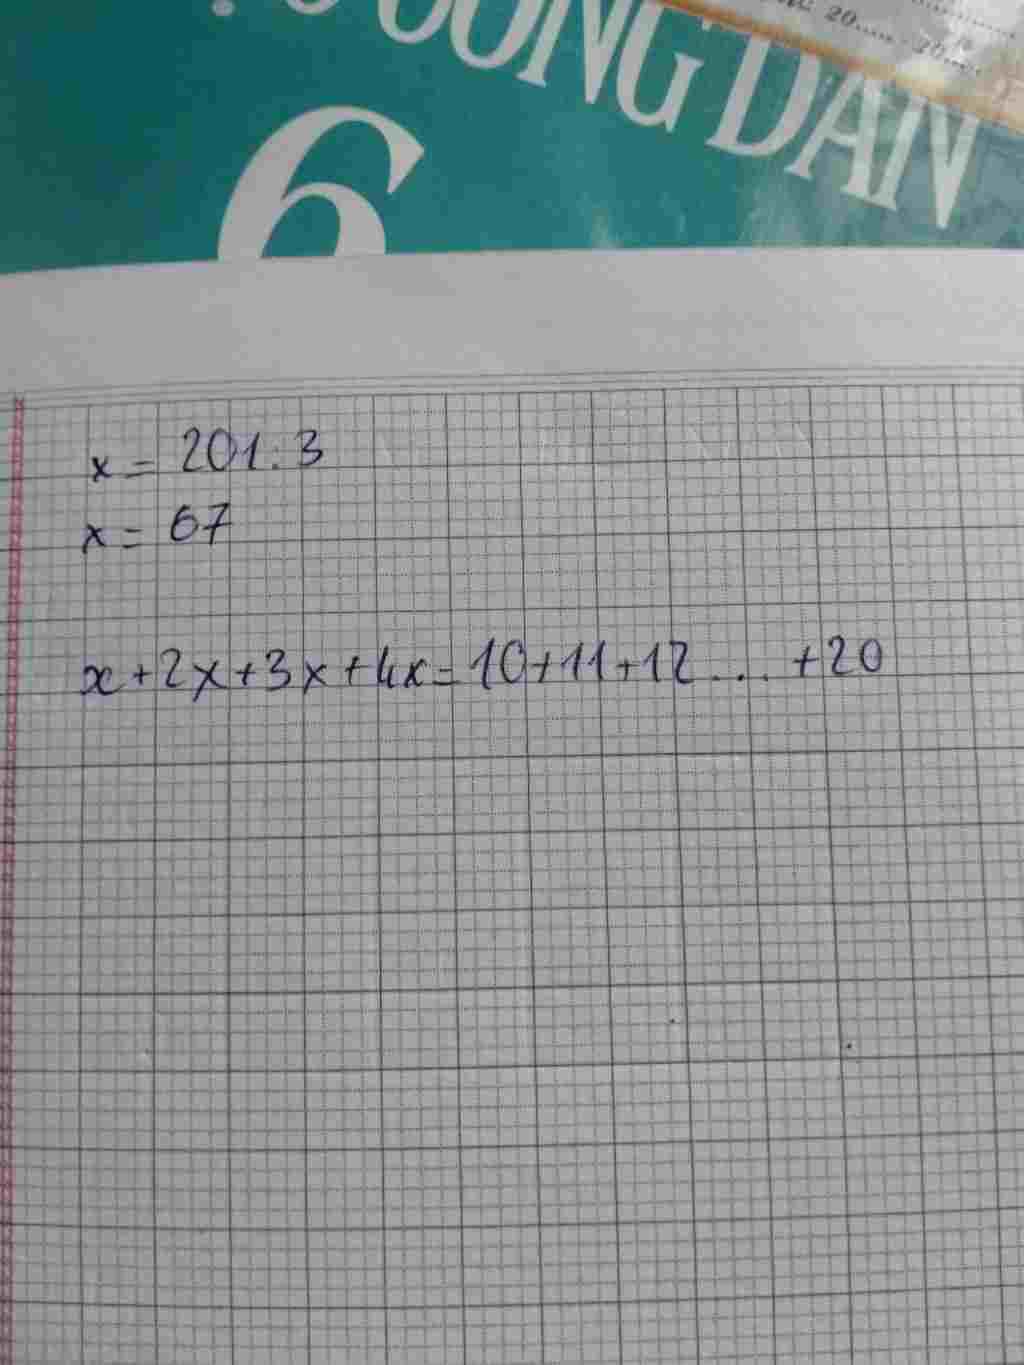 20..... 20.....
CÔNG DÂN
6
x = 201 : 3
x = 67
x + 2x + 3x + 4x = 10 + 11 + 12 ... + 20